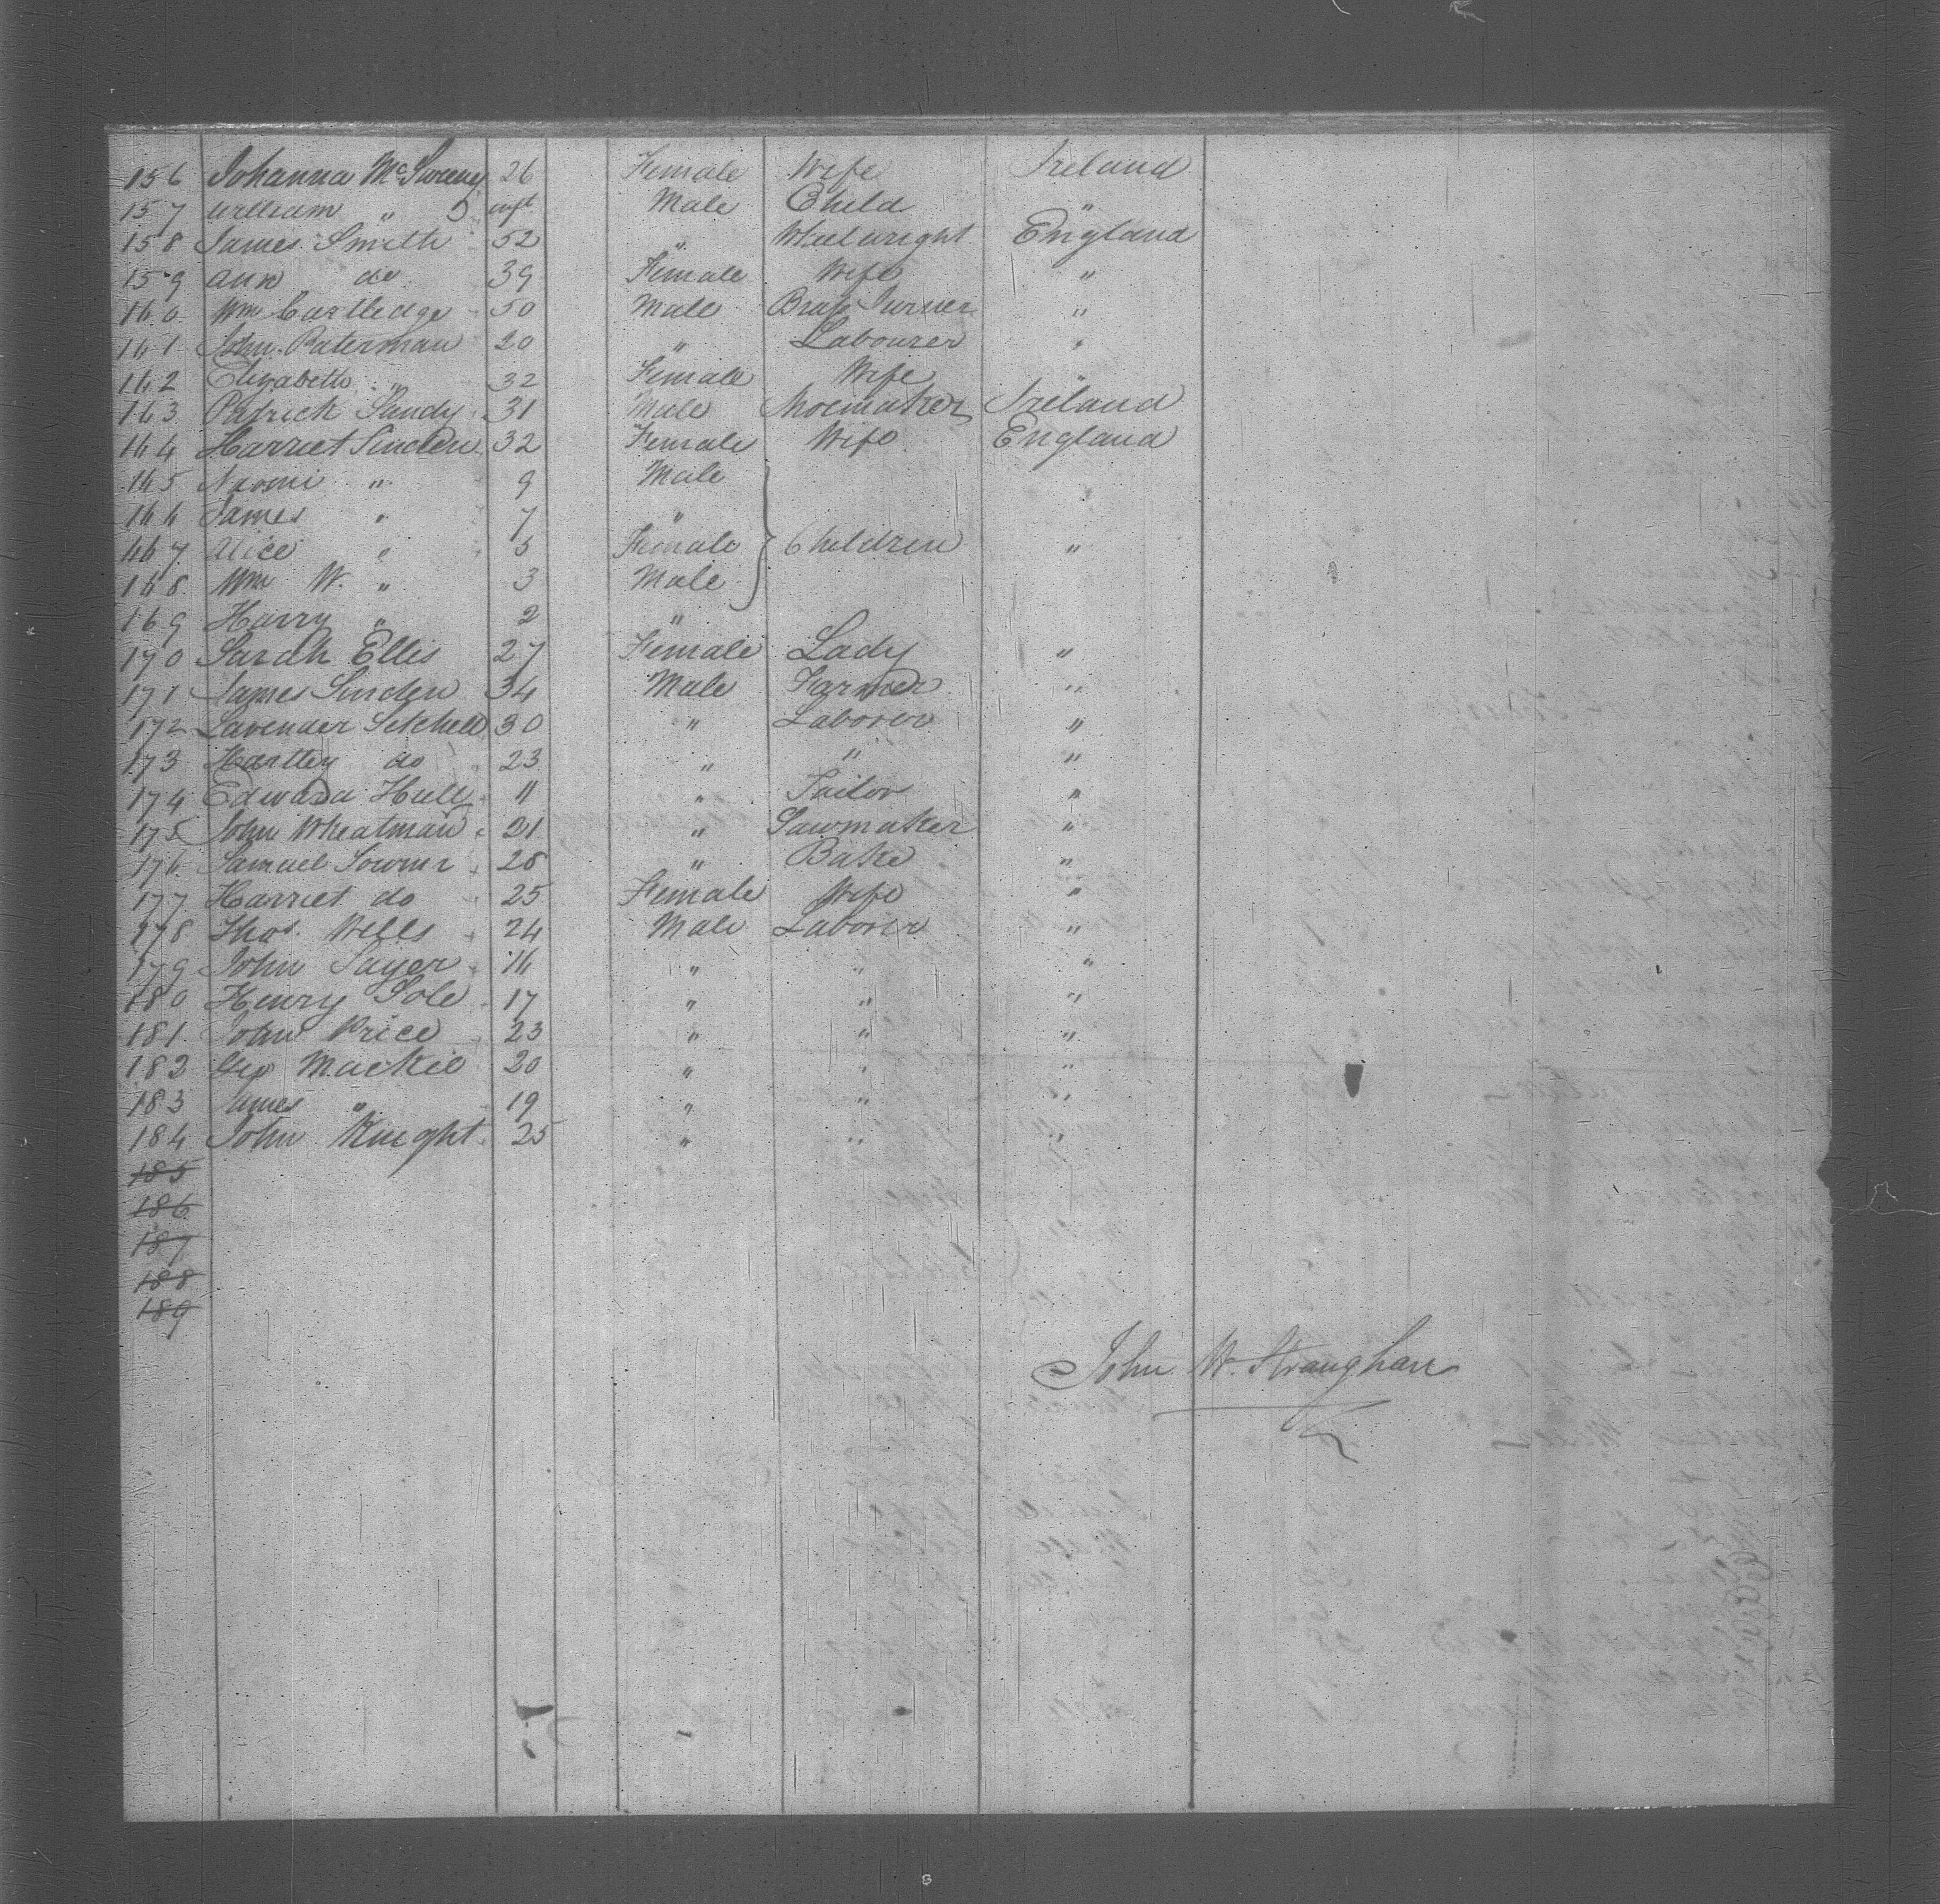 156 Johanna McSweeny 26 Female Wife Ireland
157 William " inft Male Child "
158 James Smith 52 " Wheelwright England
159 Ann do 39 Female Wife "
160 Wm Cartledge 50 Male Brass Turner "
161 John Paterman 20 " Labourer "
162 Elizabeth " 32 Female Wife "
163 Patrick Sandy 31 Male Shoemaker Ireland
164 Harriet Sinden 32 Female Wife England
165 Naomi " 9 Male
166 James " 7 " "
167 Alice " 5 Female Children "
168 Wm W. " 3 Male
169 Harry " 2 "
170 Sarah Ellis 27 Female Lady "
171 James Sinden 34 Male Farmer "
172 Lavender Setchell 30 " Laborer "
173 Hartley do 23 " " "
174 Edward Hull 11 " Tailor "
175 John Wheatman 21 " Sawmaker "
176 Samuel 28 " Bake "
177 Harriet do 25 Female Wife "
178 Thos Wells 24 Male Laborer "
179 John Sayer 16 " " "
180 Henry Sole 17 " " "
181 John Price 23 " " "
182 Geo Mackie 20 " " "
183 James " 19 " " "
184 John Knight 25 " " "
185
186
187
188
189
John W. Straughan